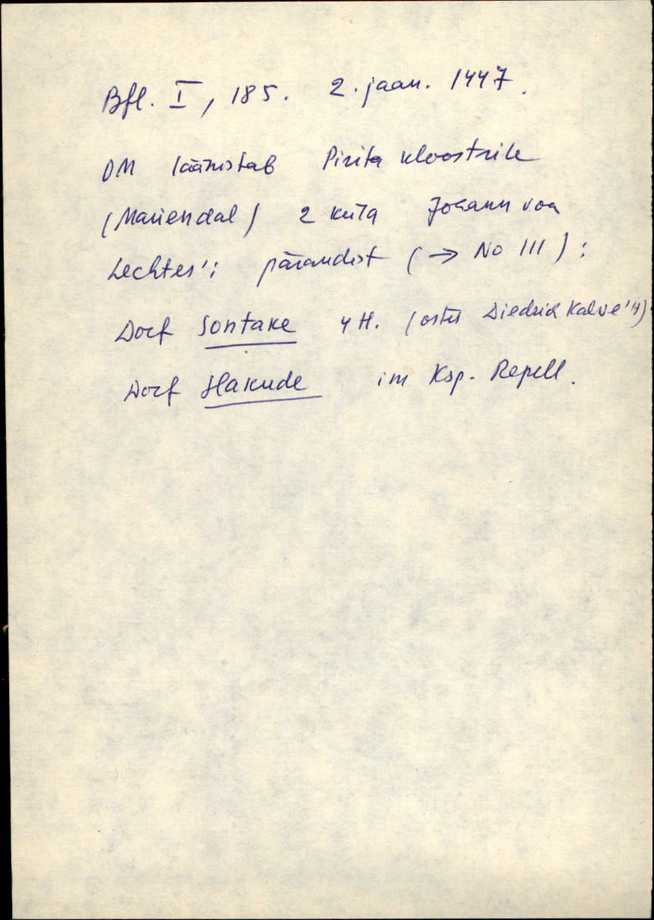 Bfl. I, 185. 2. jaan. 1447.
OM läänistab Pirita kloostrile
(Mariendal) 2 küla Johann von
Lechtes'i pärandist (→ No 111):
Dorf Sontake 4 H. (ostis Diedrich Kalve'lt)
Dorf Hakude im Ksp. Repell.